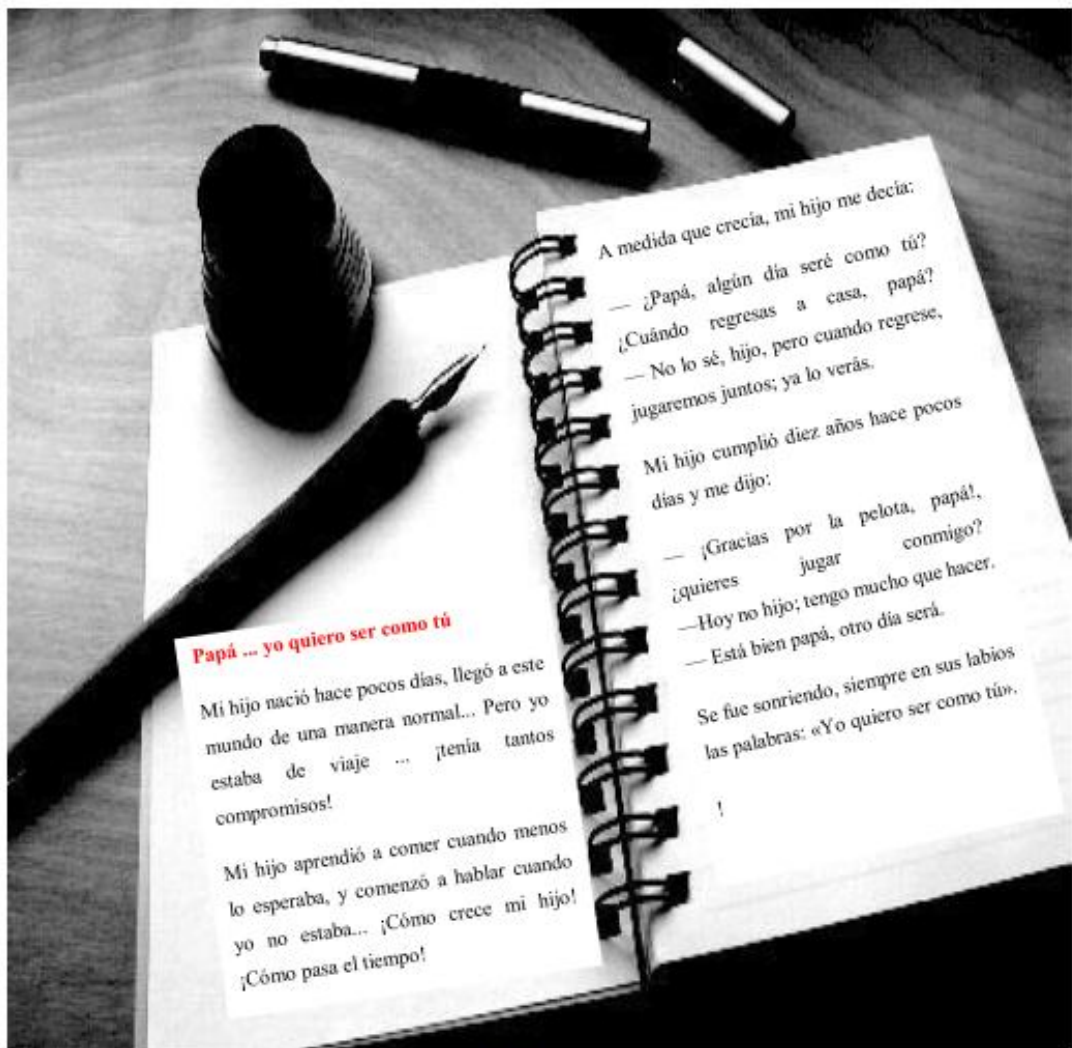 Papá ... yo quiero ser como tú
Mi hijo nació hace pocos días, llegó a este
mundo de una manera normal... Pero yo
estaba de viaje ... ¡tenía tantos
compromisos!
Mi hijo aprendió a comer cuando menos
lo esperaba, y comenzó a hablar cuando
yo no estaba... ¡Cómo crece mi hijo!
¡Cómo pasa el tiempo!
A medida que crecía, mi hijo me decía:
— ¿Papá, algún día seré como tú?
¿Cuándo regresas a casa, papá?
— No lo sé, hijo, pero cuando regrese,
jugaremos juntos; ya lo verás.
Mi hijo cumplió diez años hace pocos
días y me dijo:
— ¡Gracias por la pelota, papá!,
¿quieres jugar conmigo?
—Hoy no hijo; tengo mucho que hacer.
— Está bien papá, otro día será.
Se fue sonriendo, siempre en sus labios
las palabras: «Yo quiero ser como tú».
!